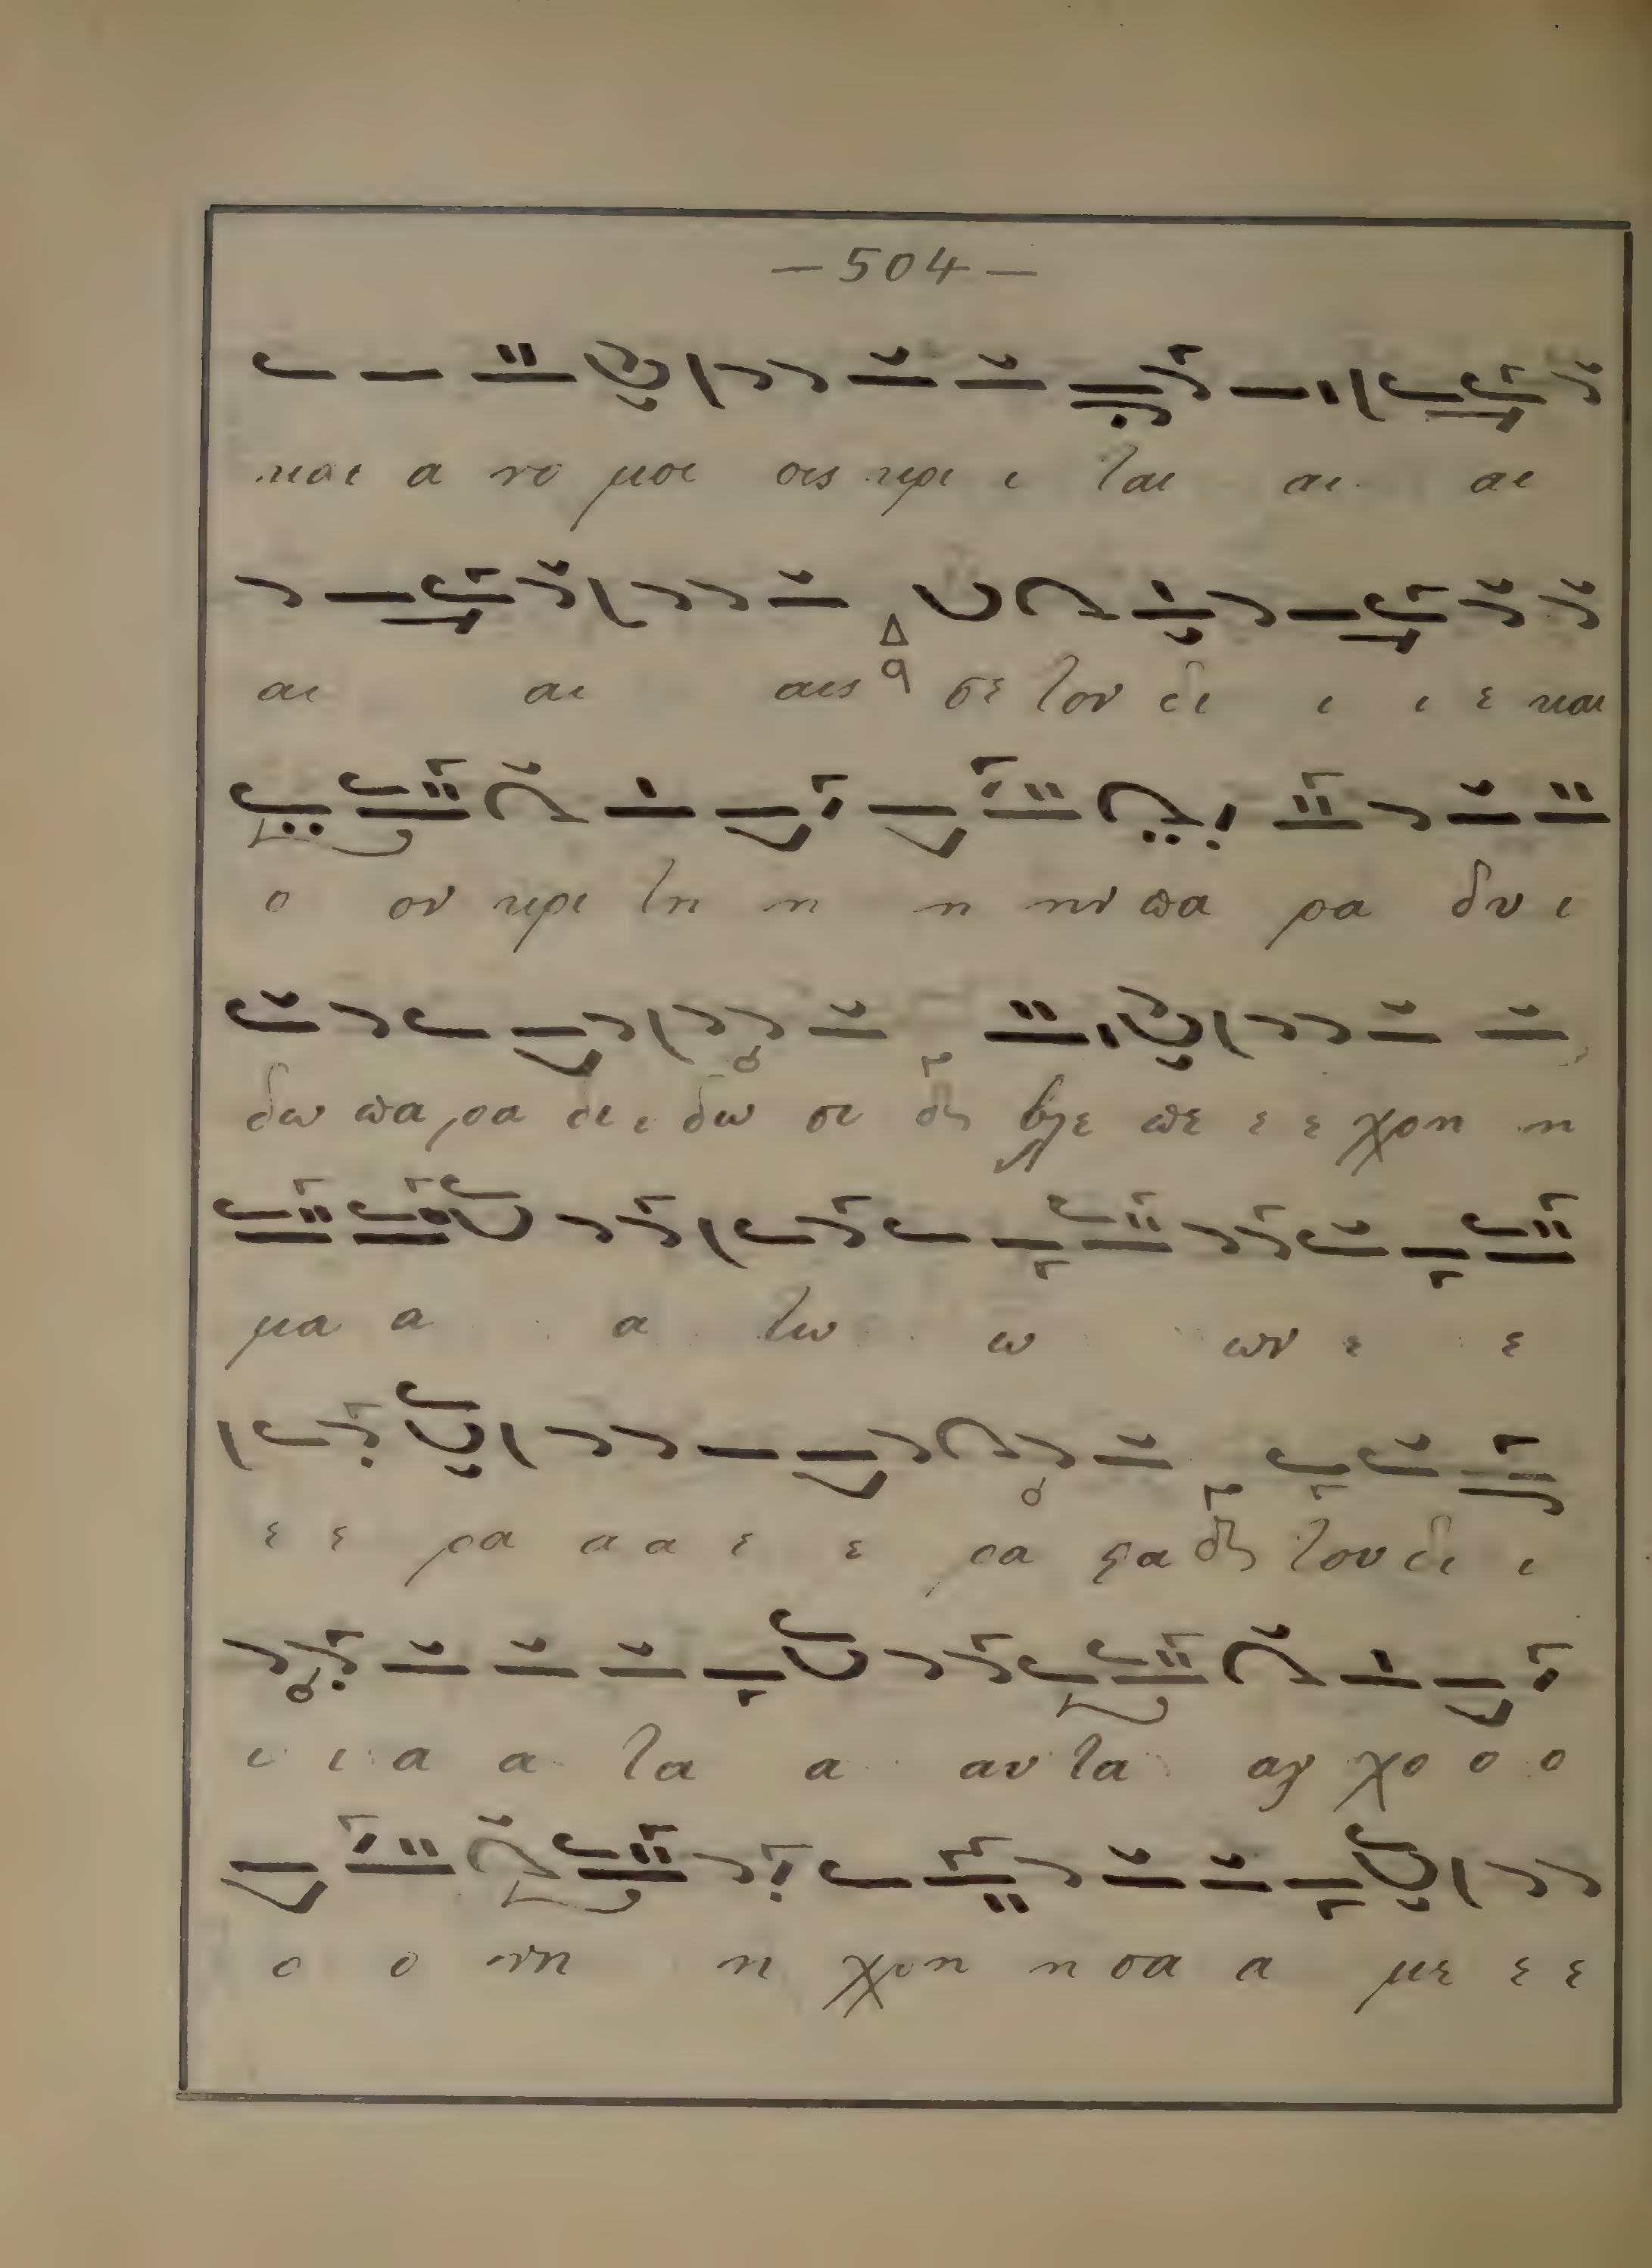 — 504 —
και α νο μοι οις κρι ι ται αι αι
αι αι αις Δ q σε τον δι ι ι ε και
ο ον κρι τη η η ην πα ρα δυ ι
δω πα ρα δι ι δω σι βλε πε ε ε χρη η
μα α α τω ω ων ε ε
ε ε ρα α α ε ε ρα ςα του δι ι
ι ι α α τα α αυ τα αγ χο ο ο
ο ο νη η χρη η σα α με ε ε